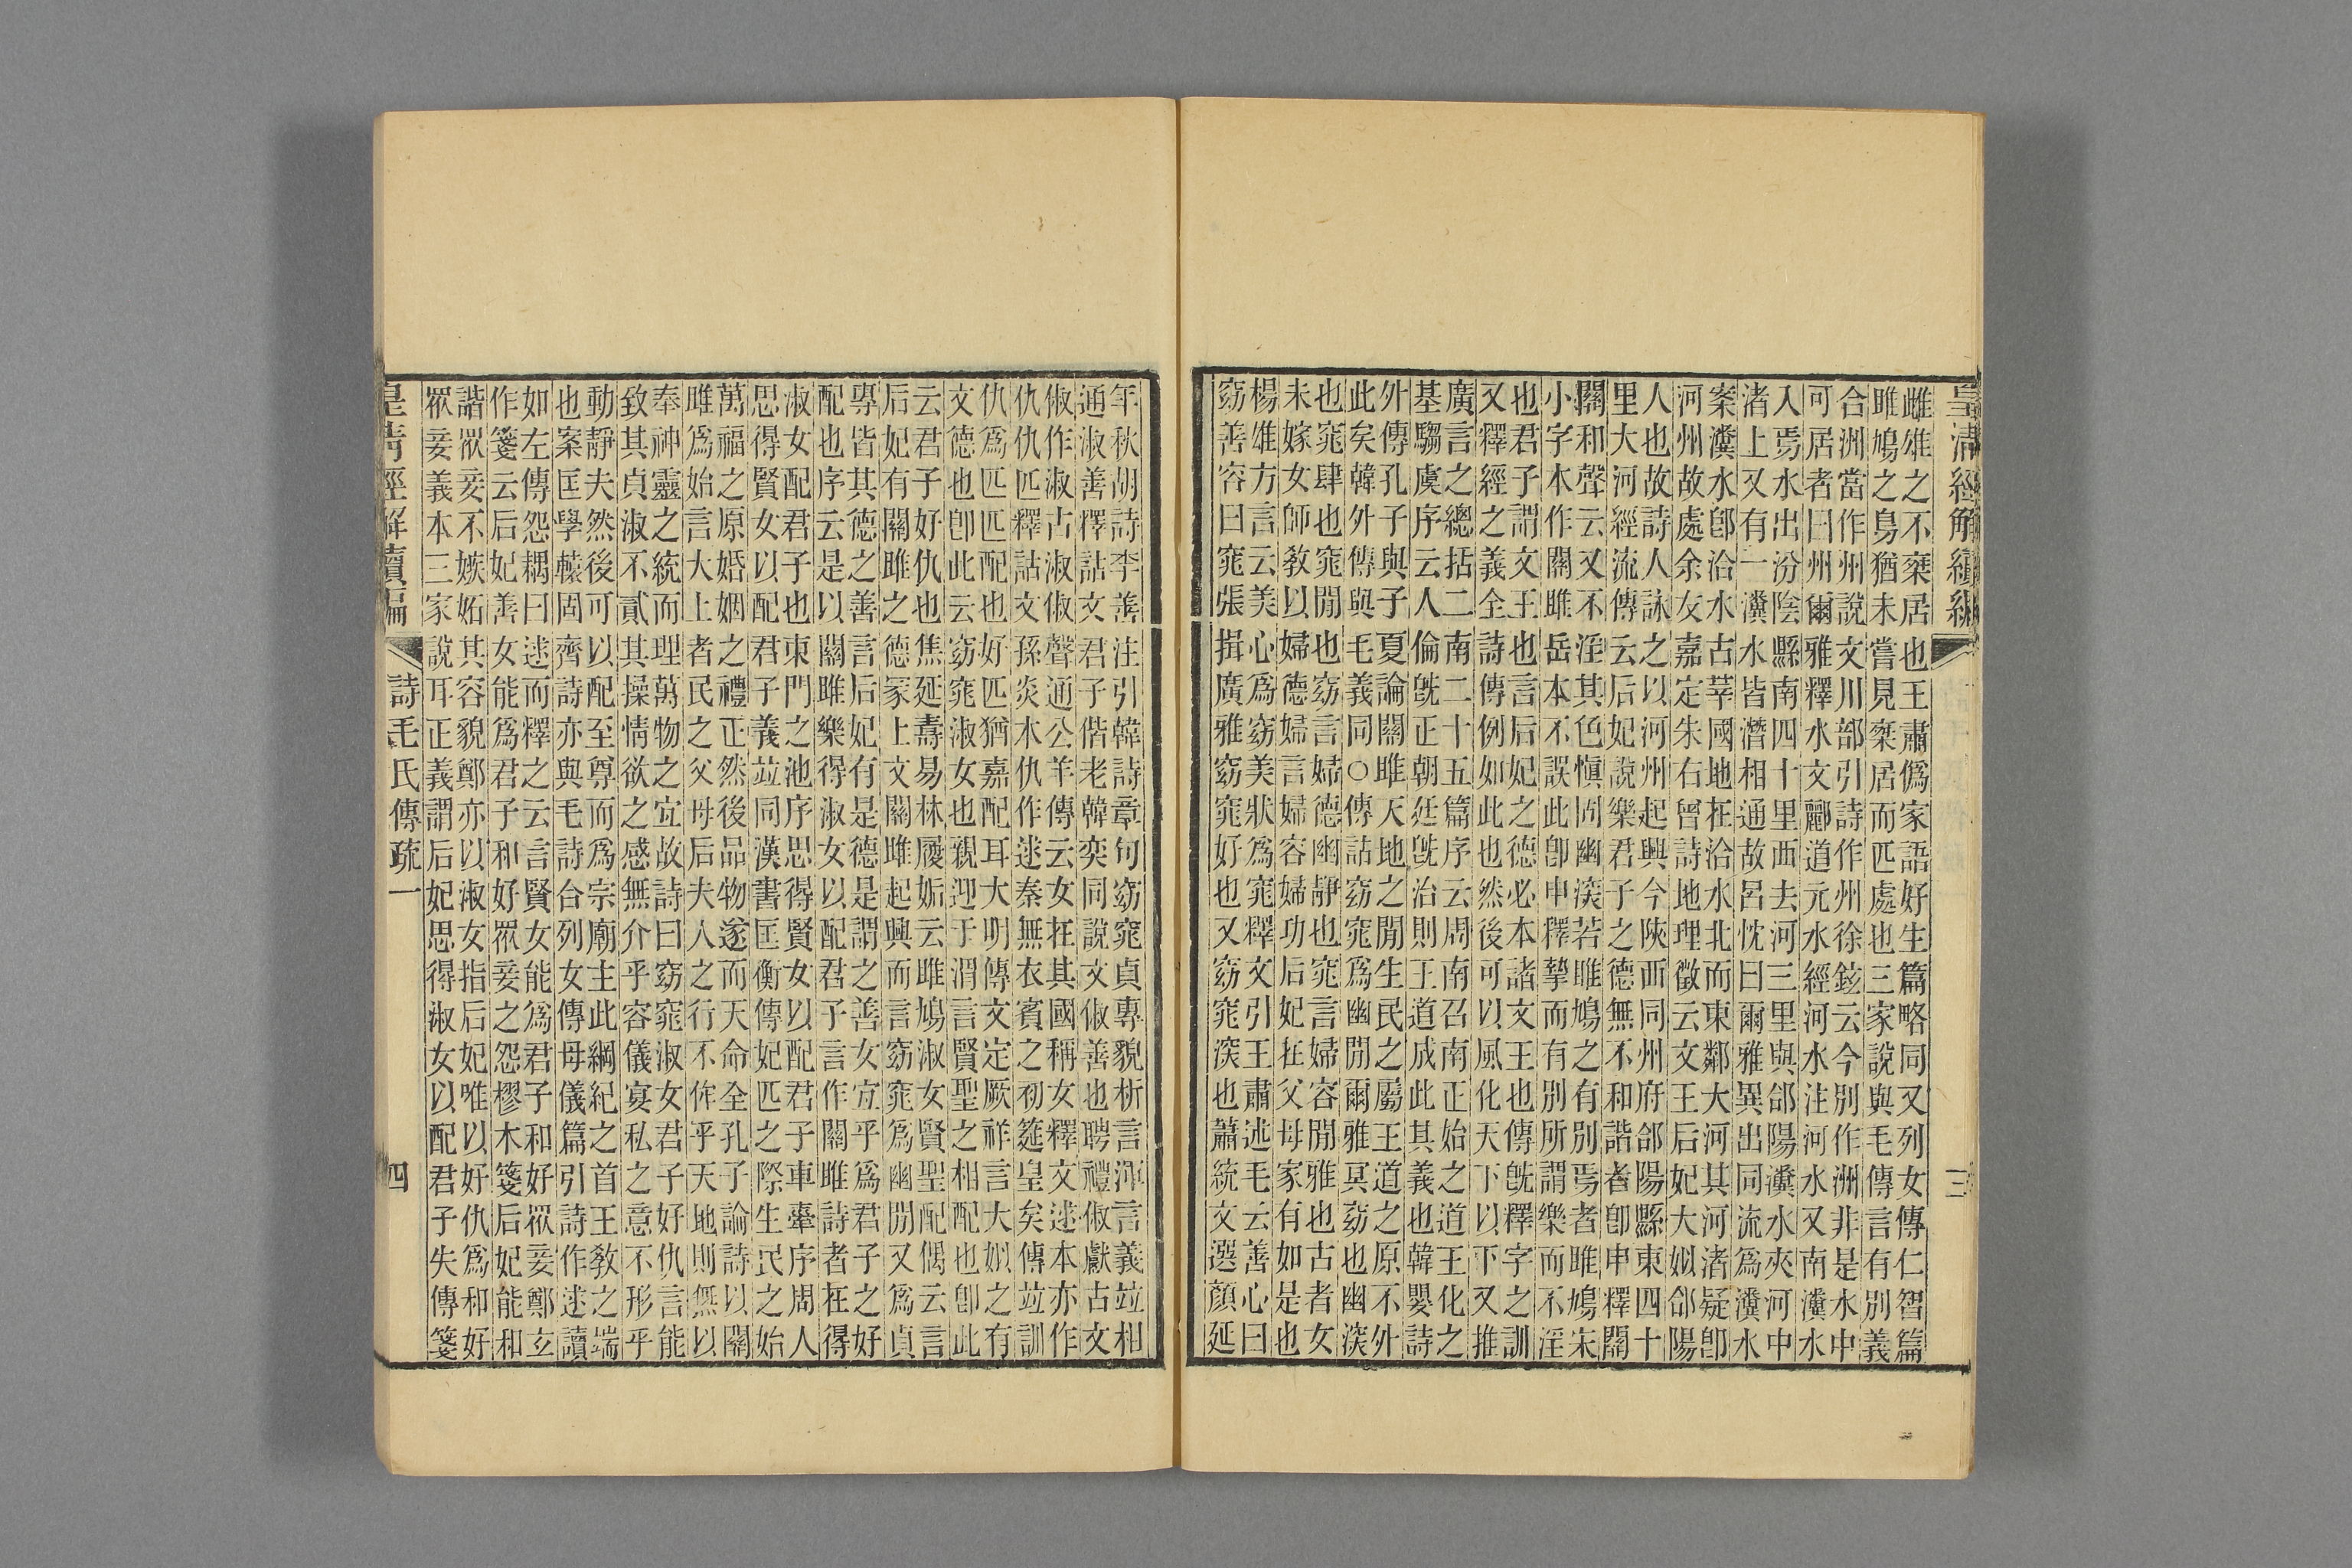 皇清經解續編
三
雌雄之不椉居也王肅僞家語好生篇略同又列女傳仁智篇
雎鳩之鳥猶未嘗見椉居而匹處也三家說與毛傳言有別義
合洲當作州說文川部引詩作州徐鉉云今別作洲非是水中
可居者曰州爾雅釋水文酈道元水經河水注河水又南瀵水
入焉水出汾陰縣南四十里西去河三里與郃陽瀵水夾河中
渚上又有一瀵水皆潛相通故呂忱曰爾雅異出同流爲瀵水
案瀵水卽洽水古莘國地在洽水北而東鄰大河其河渚疑卽
河州故處余友嘉定朱右曾詩地理徵云文王后妃大姒郃陽
人也故詩人詠之以河州起興今陝西同州府郃陽縣東四十
里大河經流傳云后妃說樂君子之德無不和諧者卽申釋關
關和聲云又不淫其色愼固幽深若雎鳩之有別焉者雎鳩宋
小字本作關雎岳本不誤此卽申釋摯而有別所謂樂而不淫
也君子謂文王也言后妃之德必本諸文王也傳旣釋字之訓
又釋經之義全詩傳例如此也然後可以風化天下以下又推
廣言之總括二南二十五篇序云周南召南正始之道王化之
基騶虞序云人倫旣正朝廷旣治則王道成此其義也韓嬰詩
外傳孔子與子夏論關雎天地之閒生民之屬王道之原不外
此矣韓外傳與毛義同○傳詁窈窕爲幽閒爾雅冥窈也幽深
也窕肆也窕閒也窈言婦德幽靜也窕言婦容閒雅也古者女
未嫁女師敎以婦德婦言婦容婦功后妃在父母家有如是也
楊雄方言云美心爲窈美狀爲窕釋文引王肅述毛云善心曰
窈善容曰窕張揖廣雅窈窕好也又窈窕深也蕭統文選顏延
年秋胡詩李善注引韓詩章句窈窕貞專貌析言渾言義竝相
通淑善釋詁文君子偕老韓奕同說文俶善也聘禮俶獻古文
俶作淑古淑俶聲通公羊傳云女在其國稱女釋文逑本亦作
仇仇匹釋詁文孫炎本仇作逑秦無衣賓之初筵皇矣傳竝訓
仇爲匹匹配也好匹猶嘉配耳大明傳文定厥祥言大姒之有
文德也卽此云窈窕淑女也親迎于渭言賢聖之相配也卽此
云君子好仇也焦延壽易林履姤云雎鳩淑女賢聖配偶云言
后妃有關雎之德冢上文關雎起興而言窈窕爲幽閒又爲貞
專皆其德之善言后妃有是德是謂之善女宜乎爲君子之好
配也序云是以關雎樂得淑女以配君子言作關雎詩者在得
淑女配君子也東門之池序思得賢女以配君子車舝序周人
思得賢女以配君子義竝同漢書匡衡傳妃匹之際生民之始
萬福之原婚姻之禮正然後品物遂而天命全孔子論詩以關
雎爲始言大上者民之父母后夫人之行不侔乎天地則無以
奉神靈之統而理萬物之宜故詩曰窈窕淑女君子好仇言能
致其貞淑不貳其操情欲之感無介乎容儀宴私之意不形乎
動靜夫然後可以配至尊而爲宗廟主此綱紀之首王敎之端
也案匡學轅固齊詩亦與毛詩合列女傳母儀篇引詩作逑讀
如左傳怨耦曰逑而釋之云言賢女能爲君子和好眾妾鄭玄
作箋云后妃善女能爲君子和好眾妾之怨樛木箋后妃能和
諧眾妾不嫉妬其容貌鄭亦以淑女指后妃唯以好仇爲和好
眾妾義本三家說耳正義謂后妃思得淑女以配君子失傳箋
皇清經解續編
詩毛氏傳疏一
四